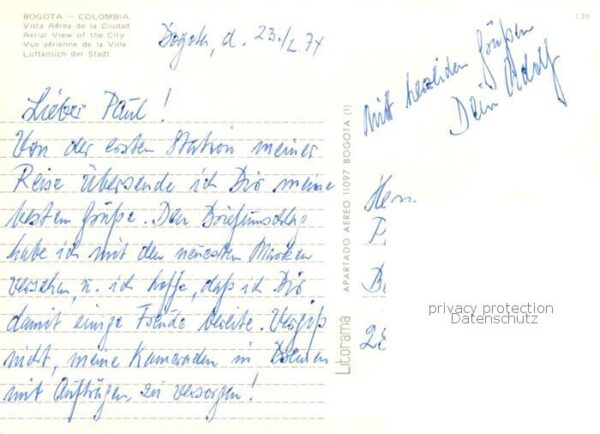 BOGOTA - COLOMBIA
Vista Aérea de la Ciudad
Aerial View of the City
Vue aérienne de la Ville
Luftansich der Stadt
139
Bogota, d. 23./2.74
Lieber Paul!
Von der ersten Station meiner
Reise übersende ich Dir meine
besten Grüße. Den Briefumschlag
habe ich mit den neuesten Marken
versehen, u. ich hoffe, daß ich Dir
damit einige Freude bereite. Vergiß
nicht, meine Kameraden in Bremen
mit Aufträgen zu versorgen!
Mit herzlichen Grüßen
Dein Adolf
Litorama
APARTADO AEREO 11097 BOGOTA (1)
Herrn
P
B
28
privacy protection
Datenschutz